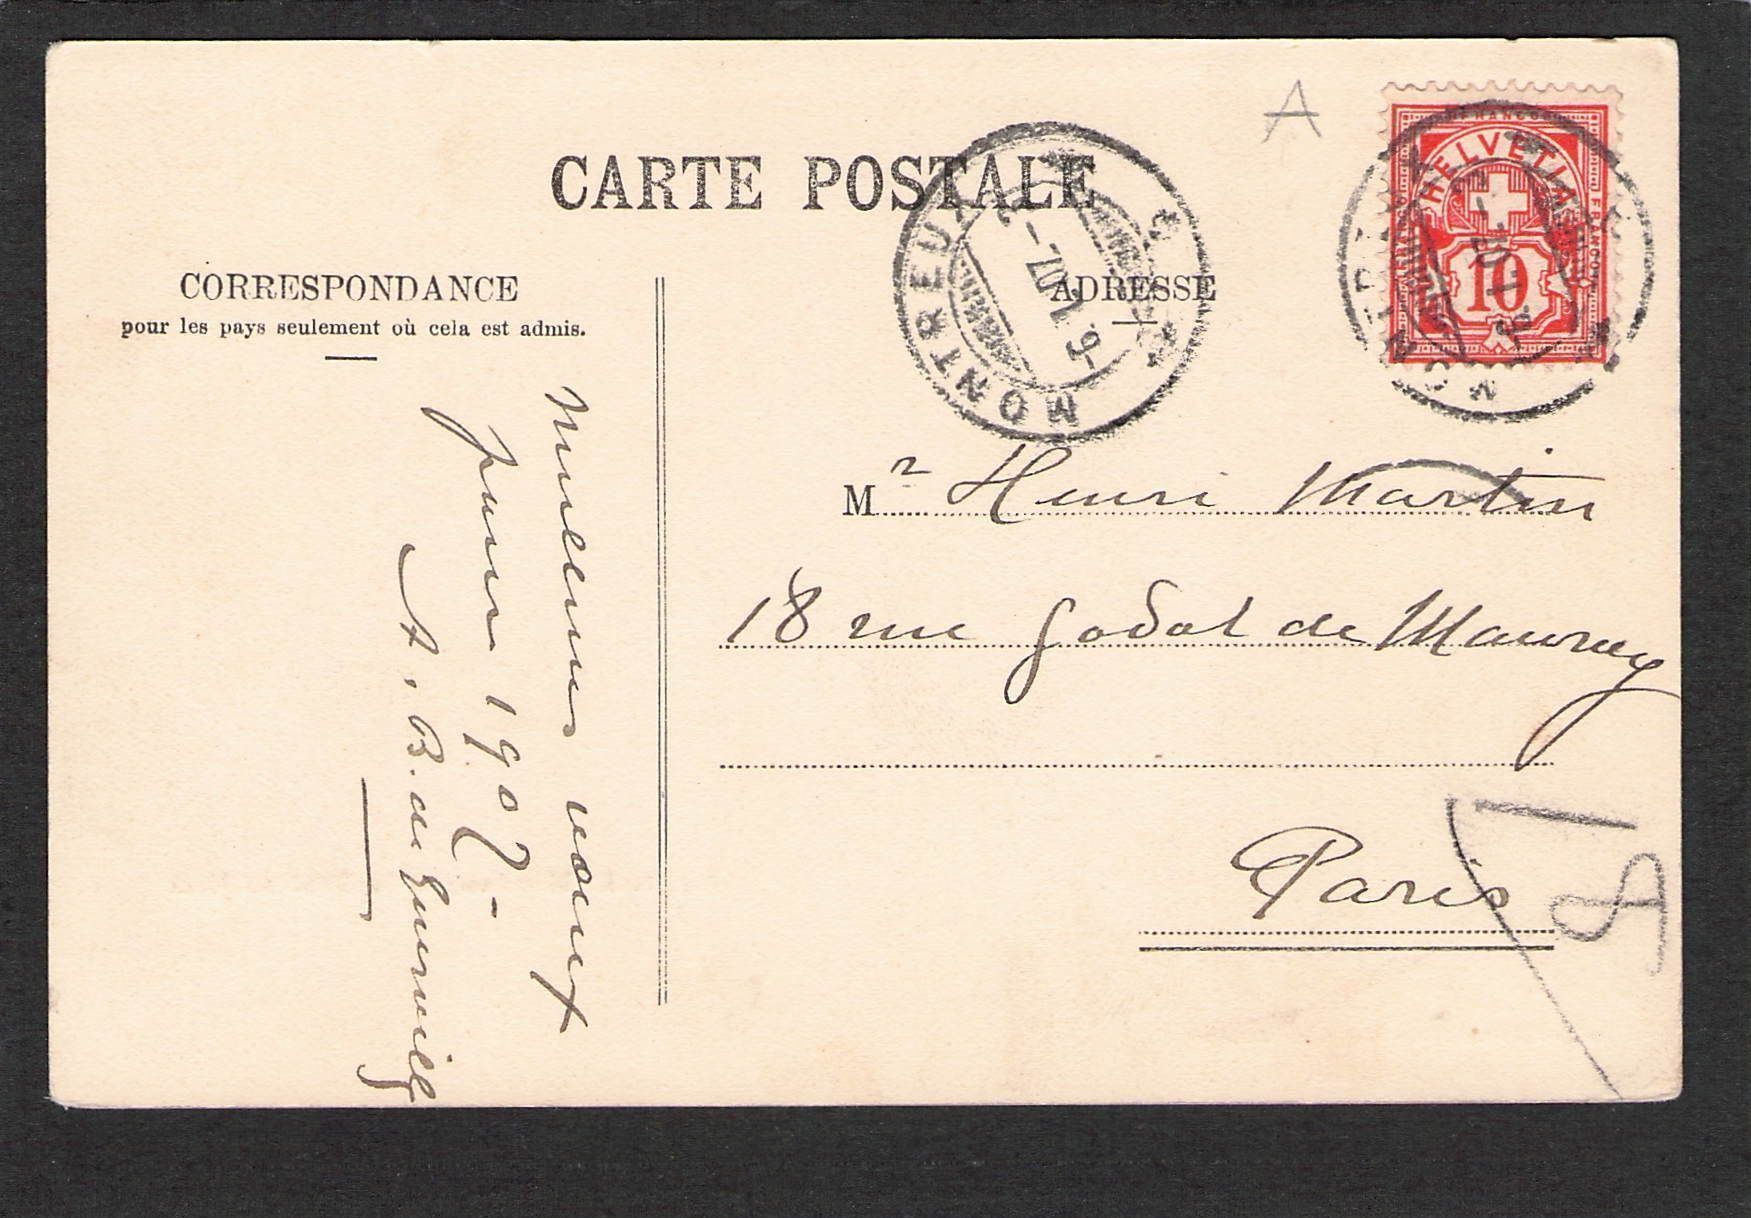 A
CARTE POSTALE
FRANCO
HELVETIA
FRANCO
10
MONTREUX
2.I.07.-9
CORRESPONDANCE
pour les pays seulement où cela est admis.
ADRESSE
Meilleurs vœux
pour 1907-
A. B. de Guerville
Mr Henri Martin
18 rue Godot de Mauroy
Paris
18